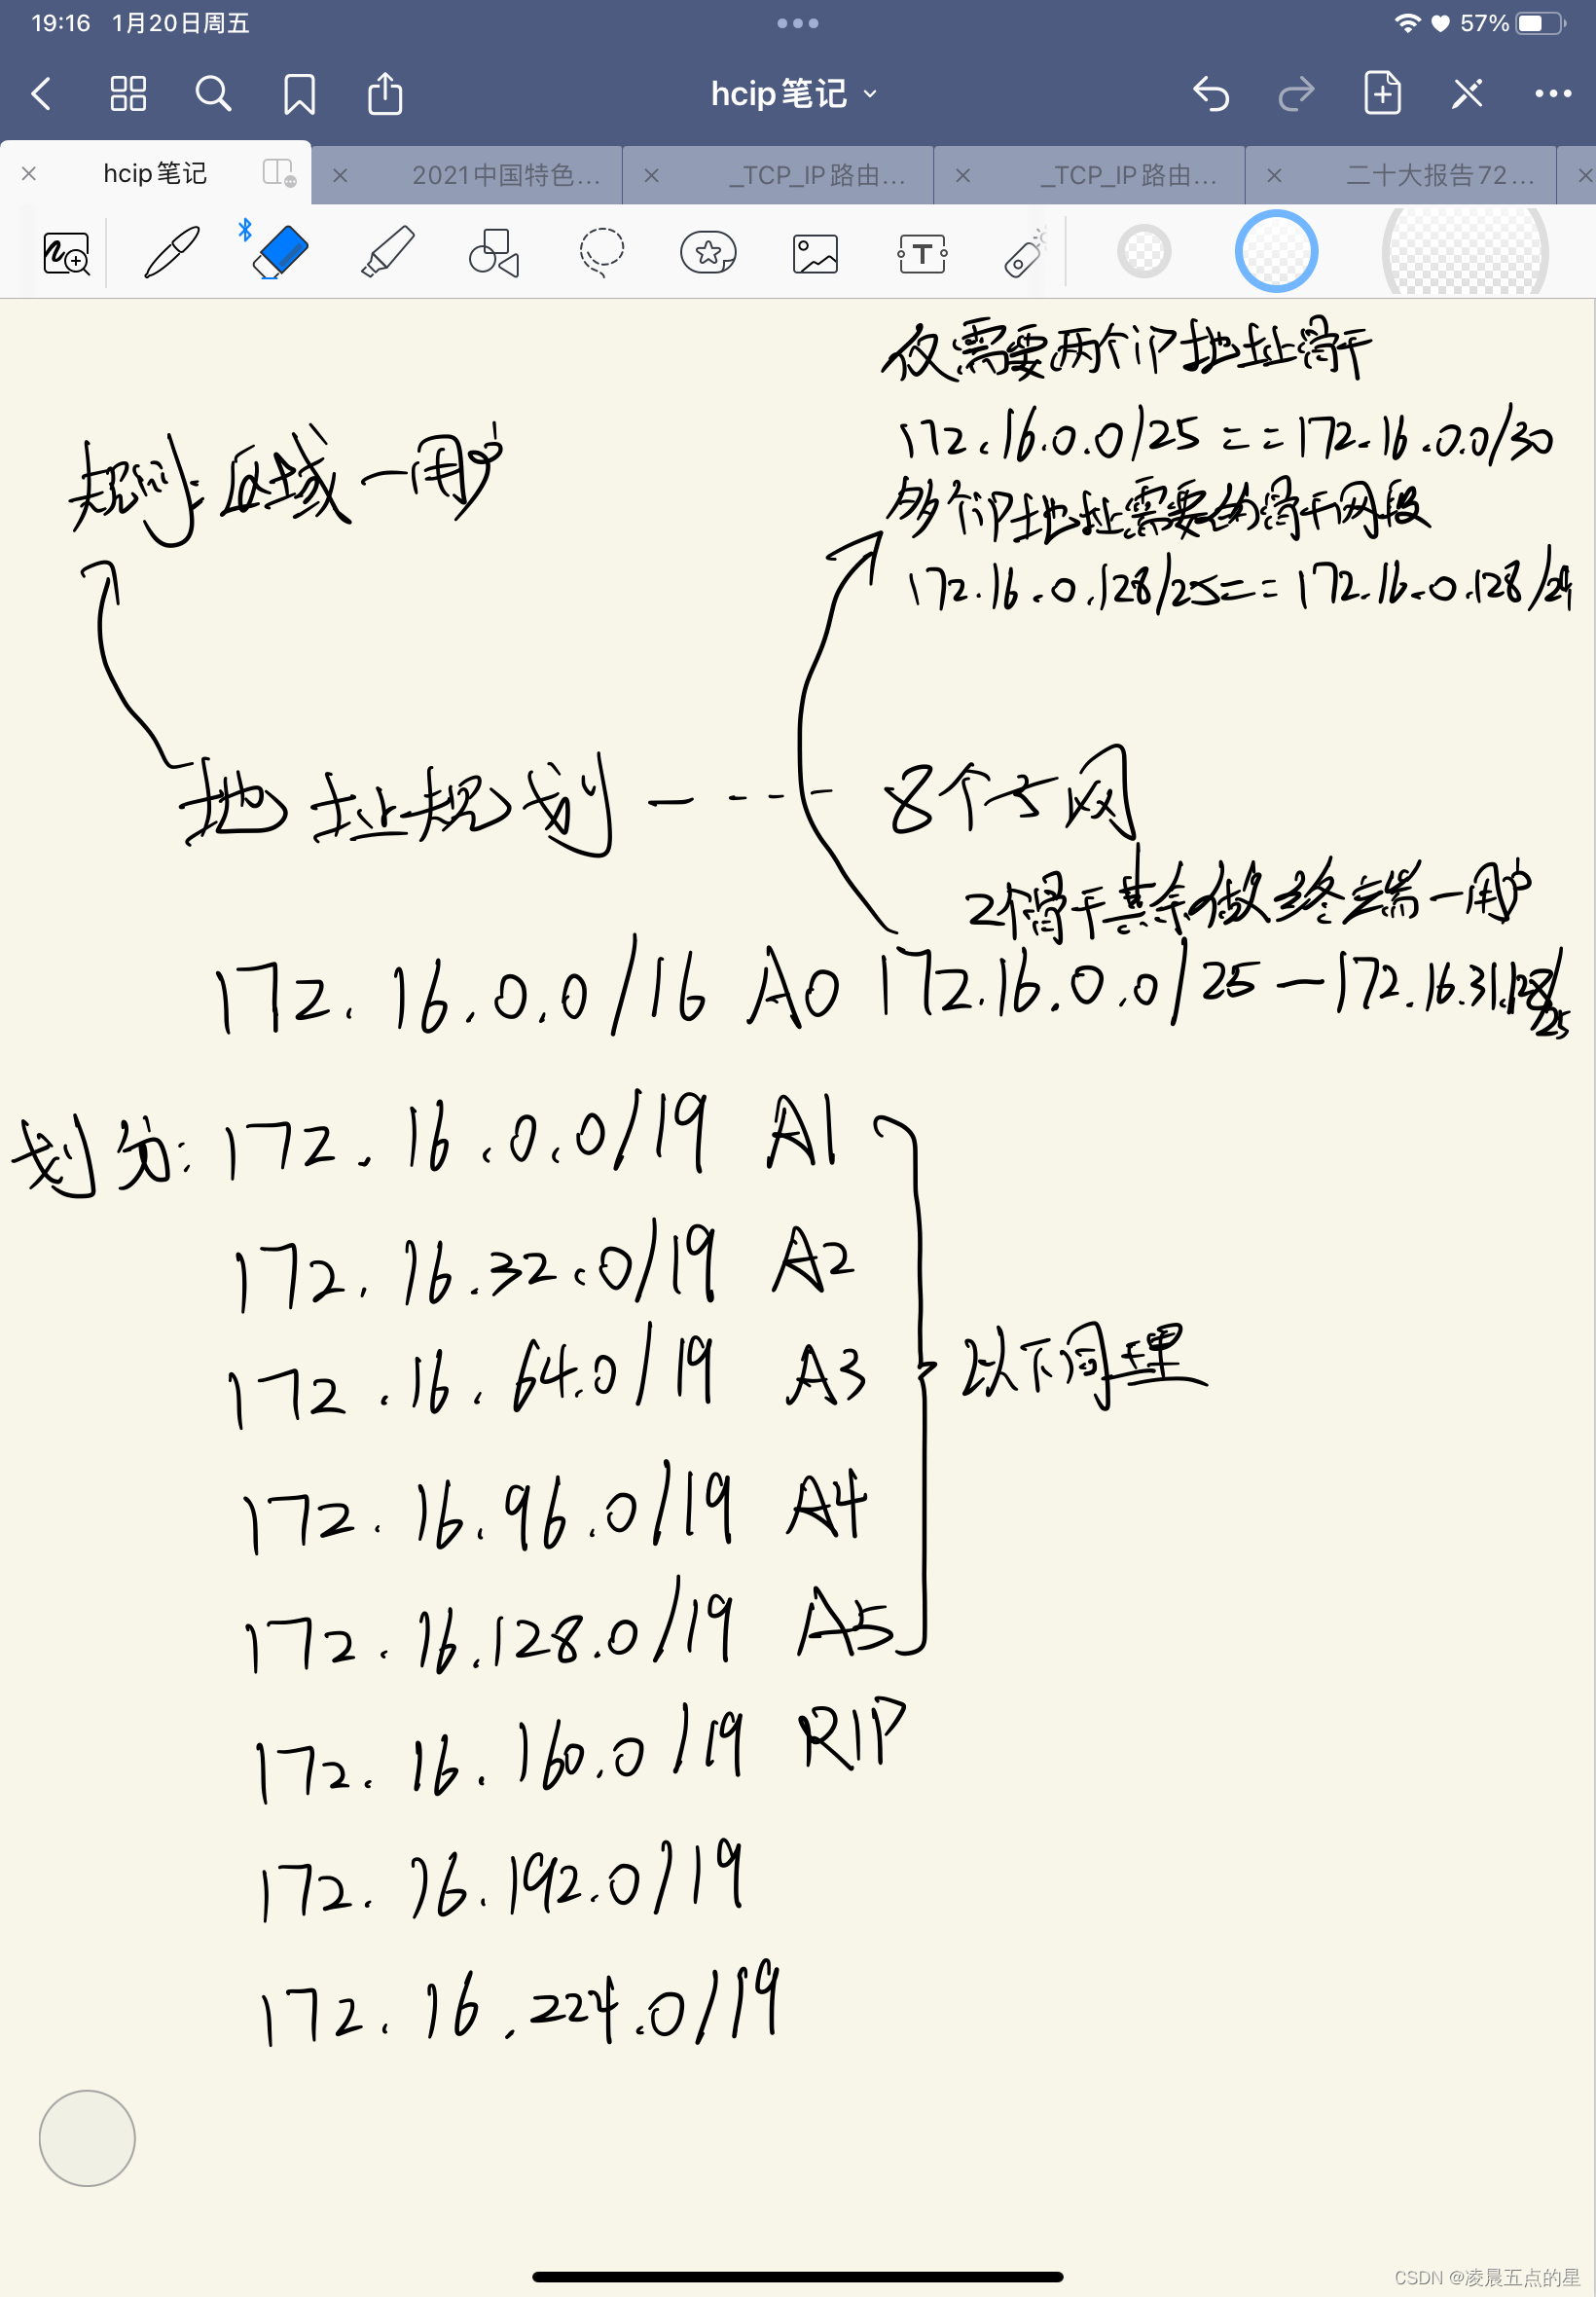 19:16 1月20日周五
57%
hcip 笔记
hcip 笔记
2021中国特色...
_TCP_IP路由...
_TCP_IP路由...
二十大报告72...
仅需要两个IP地址骨干
172.16.0.0/25 == 172.16.0.0/30
多个IP地址需要的骨干网段
172.16.0.128/25 == 172.16.0.128/29
规则:区域一用户
地址规划 — - - - - 8个子网
2个骨干其余做多终端一用户
172.16.0.0/16 A0 172.16.0.0/25 — 172.16.31.128/25
划分: 172.16.0.0/19 A1
172.16.32.0/19 A2
172.16.64.0/19 A3
以下同理
172.16.96.0/19 A4
172.16.128.0/19 A5
172.16.160.0/19 RIP
172.16.192.0/19
172.16.224.0/19
CSDN @凌晨五点的星